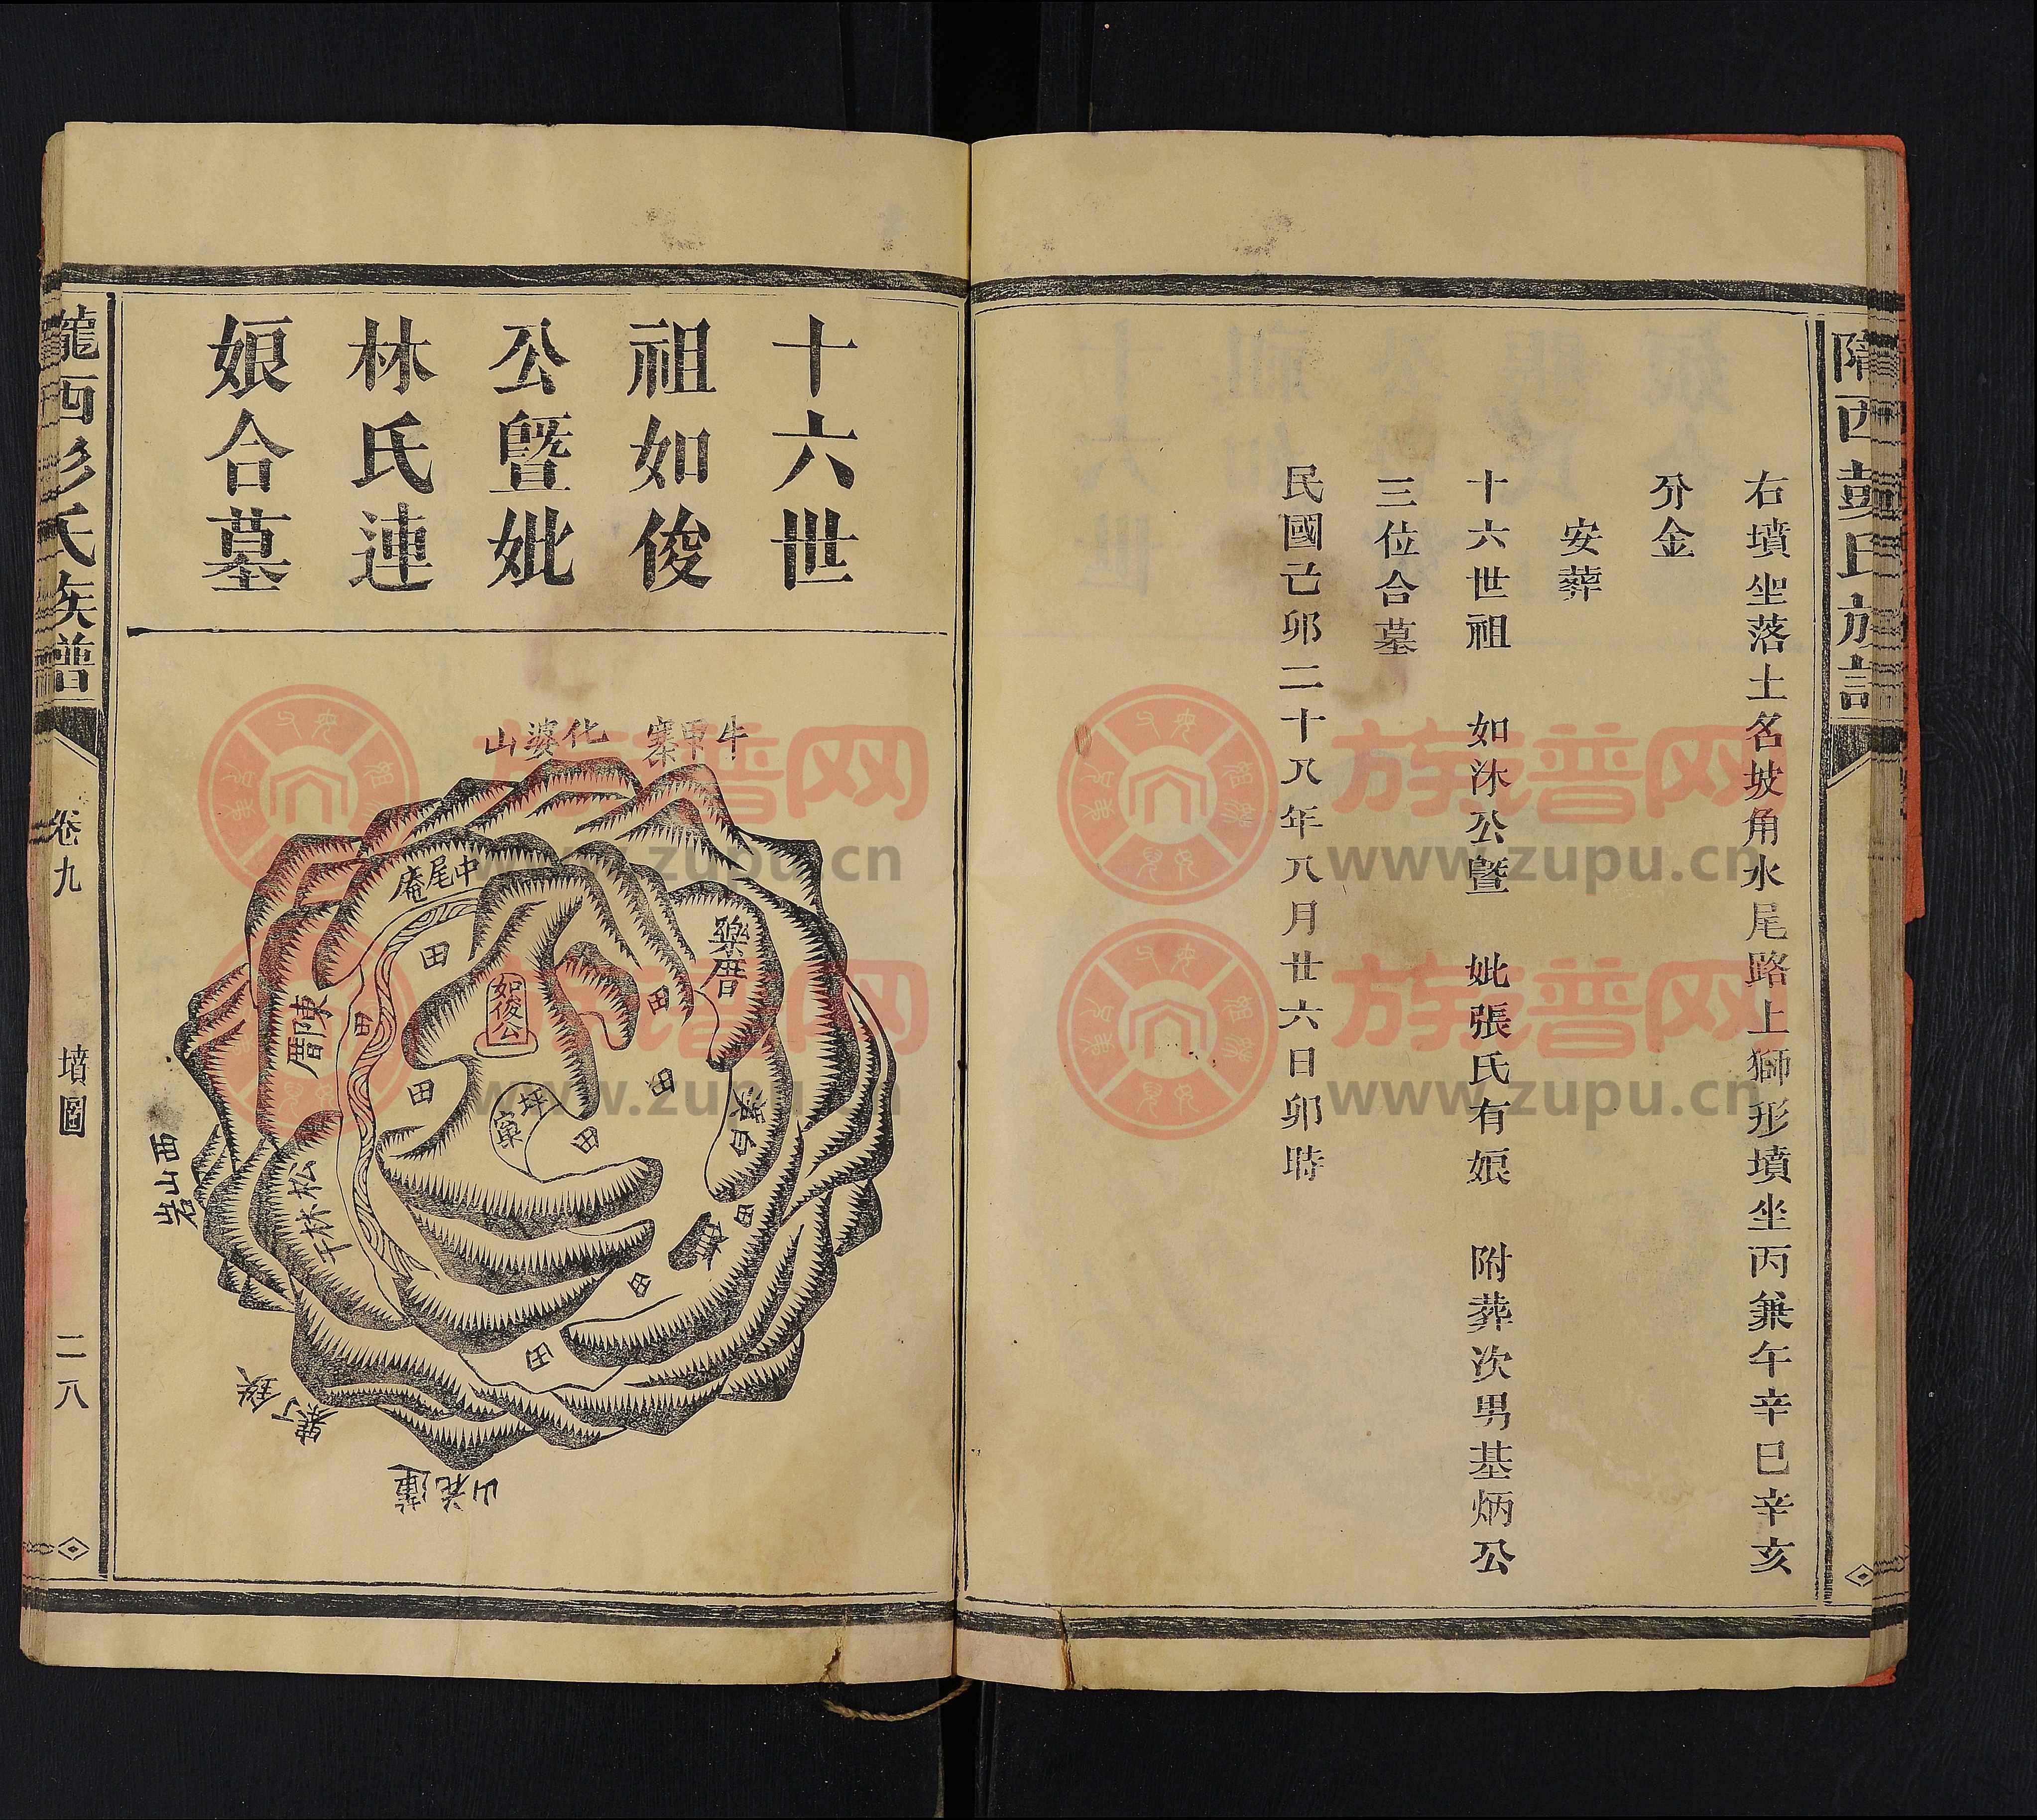 隴西彭氏族譜
右墳坐落土名坡角水尾路上獅形墳坐丙兼午辛巳辛亥
分金
安葬
十六世祖 如沐公暨 妣張氏有娘 附葬次男基炳公
三位合墓
民國己卯二十八年八月廿六日卯時
十六世
祖如俊
公暨妣
林氏連
娘合墓
牛甲寨
化婆山
中尾庵
樂厝
陳厝
田
田
田
田
田
田
田
田
田
如俊公
坪
窠
松林下
西山岩
蓮花山
隴西彭氏族譜
卷九
墳圖
二八
族譜网
www.zupu.cn
族譜网
www.zupu.cn
族譜网
www.zupu.cn
族譜网
www.zupu.cn